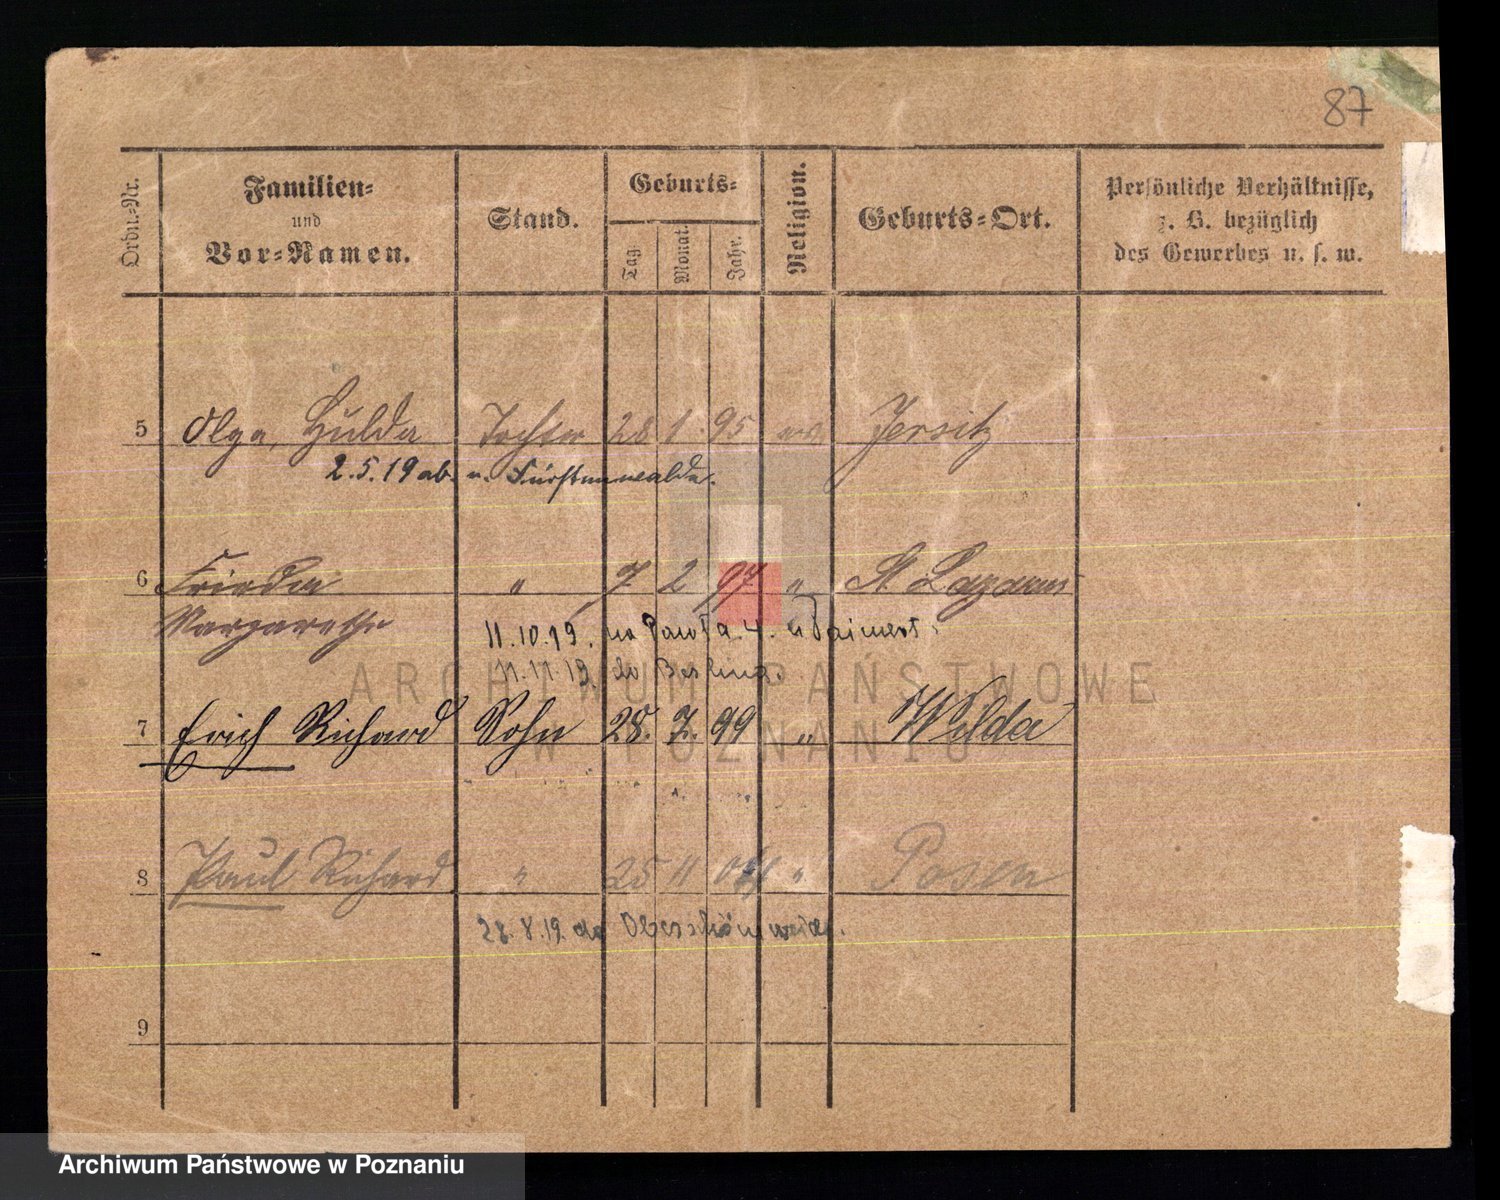 87
Ordn.-Nr.
Familien-
und
Vor-Namen.
Stand.
Geburts-
Tag
Monat.
Jahr.
Religion.
Geburts-Ort.
Persönliche Verhältnisse,
z. B. bezüglich
des Gewerbes u. s. w.
5 Olga, Hulda Tochter 28 1. 95 Jersitz
2.5.19 ab. n. Fürstenwalde.
6 Frieda " 7 2 97 " St Lazarus
Margarethe
11.10.19. na u
11.11.19. do Berlina.
7 Erich Richard Sohn 28. 7. 99 " Wilda
8 Paul Richard " 25 11 04 " Posen
28.8.19. do Oberschöneweide.
9
ARCHIWUM PAŃSTWOWE
W POZNANIU
Archiwum Państwowe w Poznaniu